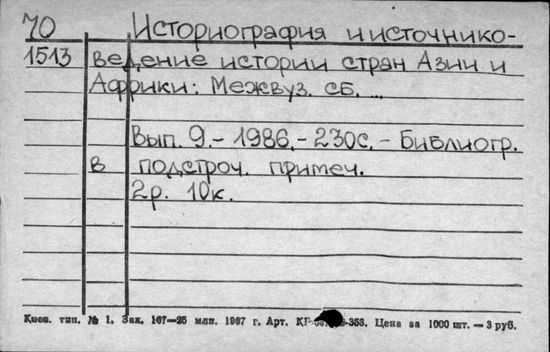 70 Историография и источнико-
1513 ведение истории стран Азии и
Африки: Межвуз. сб. ...
Вып. 9.- 1986.- 230с. - Библиогр.
в подстроч. примеч.
2р. 10к.
Киев. тип. № 1. Зак. 167—25 млн. 1967 г. Арт. -353. Цена за 1000 шт. — 3 руб.